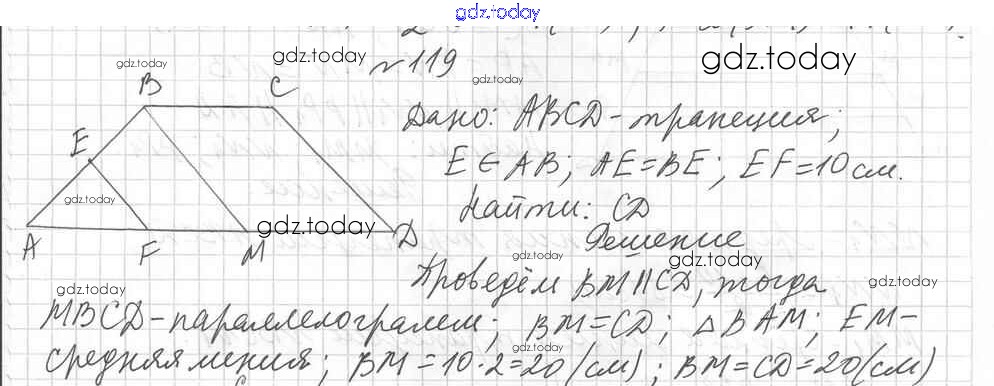 gdz.today
gdz.today
№119
gdz.today
gdz.today
B C
Дано: ABCD-трапеция;
E
E ∈ AB; AE=BE; EF=10см.
gdz.today
Найти: CD
gdz.today
A F M D
Решение
gdz.today
Проведём BM||CD, тогда
gdz.today
gdz.today
MBCD-параллелограмм; BM=CD; △BAM; EM-
gdz.today
gdz.today
gdz.today
средняя линия; BM=10·2=20(см); BM=CD=20(см)